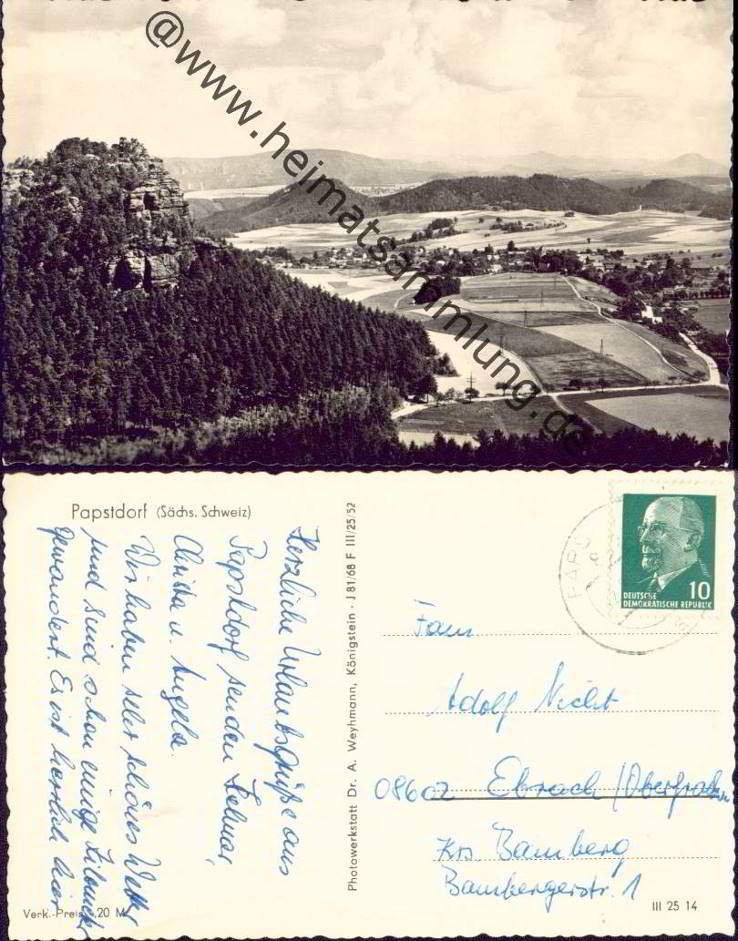 @www.heimatsammlung.de
Papstdorf (Sächs. Schweiz)
Herzliche Urlaubsgrüße aus
Papstdorf senden Helmar,
Christa u. Angela.
Wir haben sehr schönes Wetter
und sind schon einige Kilometer
gewandert. Es ist herrlich hier
Verk.-Preis -,20 M
Photowerkstatt Dr. A. Weyhmann, Königstein - J 81/68 F III/25/52
DEUTSCHE
DEMOKRATISCHE REPUBLIK
10
Fam
Adolf Nicht
08602 Ebrach / Oberfrank
Krs Bamberg
Bambergerstr. 1
III 25 14